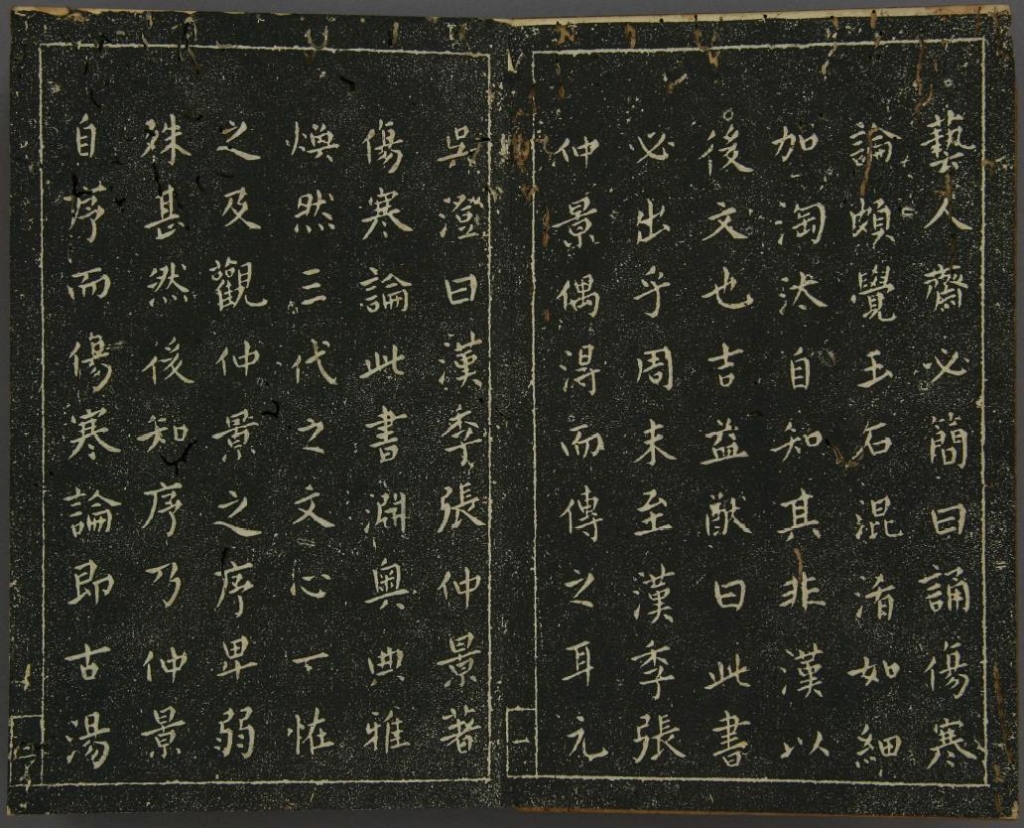 藝人齋必簡曰誦傷寒
論頗覺玉石混淆如細
加淘汰自知其非漢以
後文也吉益猷曰此書
必出乎周末至漢季張
仲景偶得而傳之耳元
一
吳澄曰漢季張仲景著
傷寒論此書淵奧典雅
煥然三代之文心一恠
之及觀仲景之序卑弱
殊甚然後知序乃仲景
自序而傷寒論即古湯